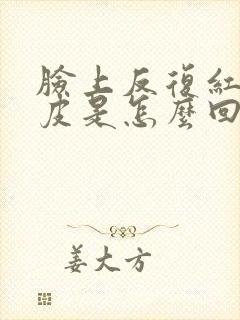 臉上反復紅
皮是怎麼回
姜大方